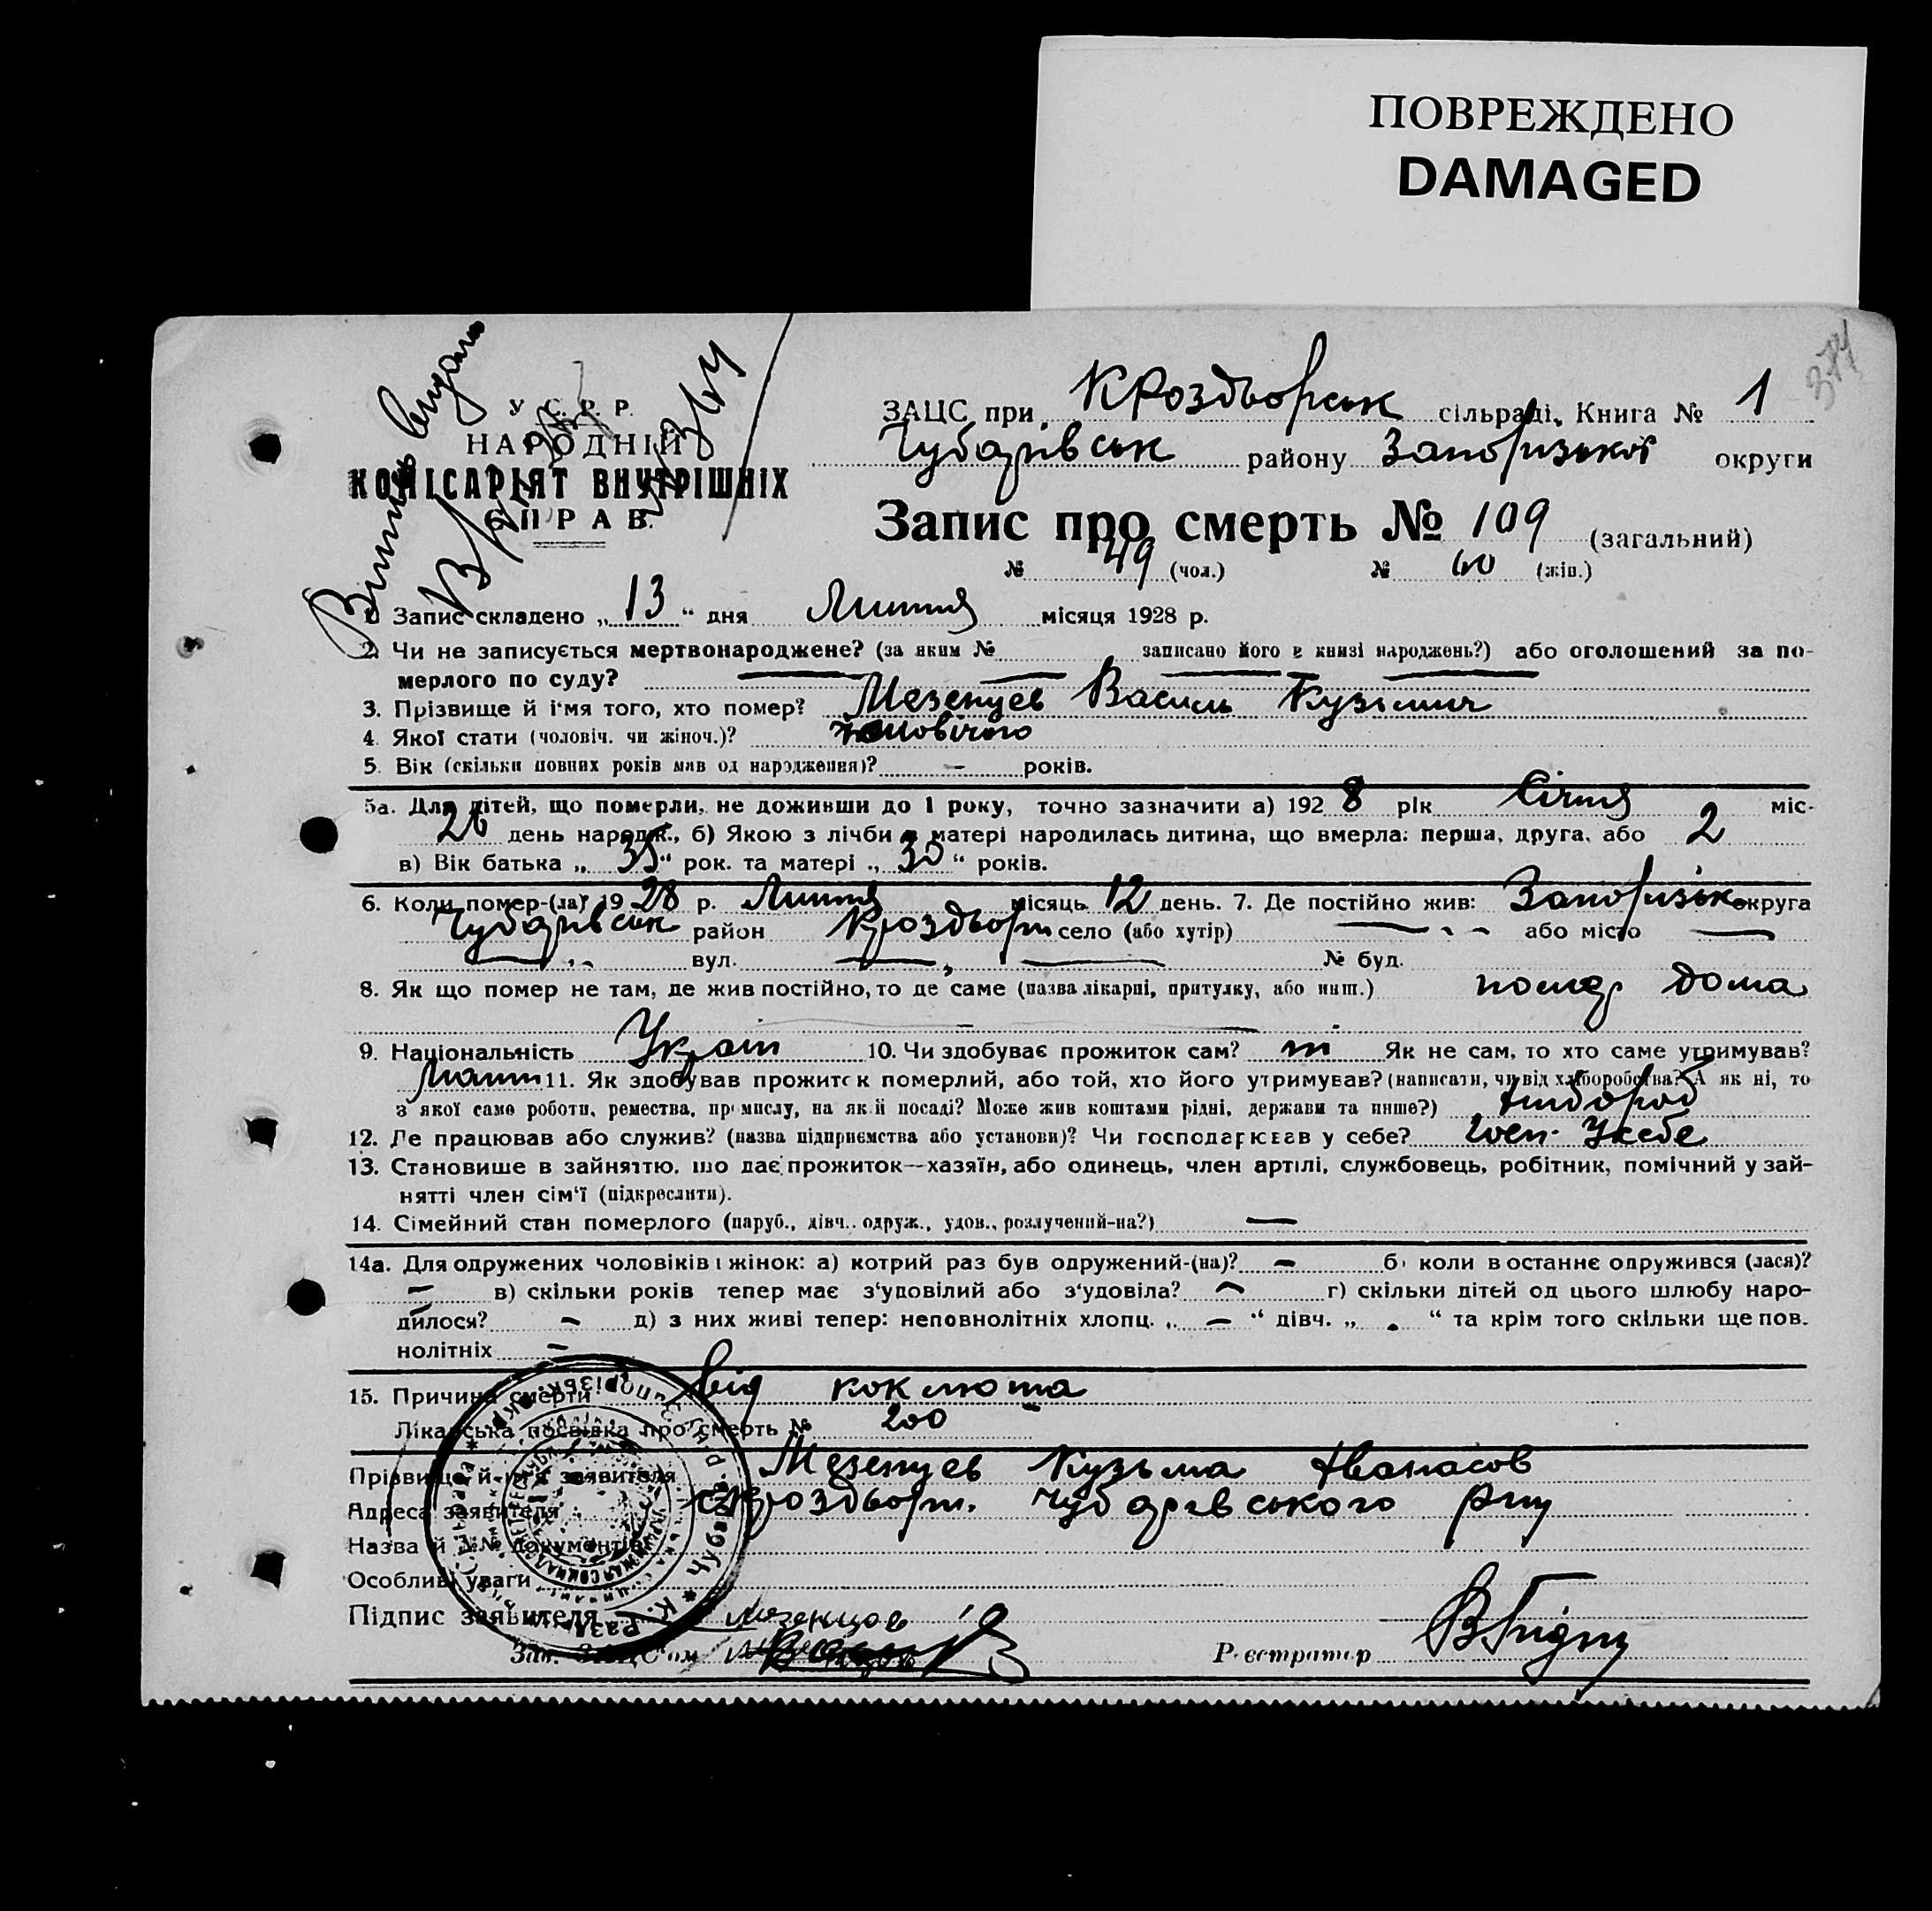 ПОВРЕЖДЕНО
DAMAGED
374
У. С. Р. Р.
НАРОДНІЙ
КОМІСАРІЯТ ВНУТРІШНІХ
СПРАВ.
ЗАЦС при КРоздорськ сільраді, Книга № 1
Чубарівськ району Запоризької округи
Запис про смерть № 109 (загальний)
№ 49 (чол.) № 60 (жін.)
1. Запис складено „13“ дня Липня місяця 1928 р.
2. Чи не записується мертвонароджене? (за яким № записано його в книзі народжень?) або оголошений за по-
мерлого по суду? —
3. Прізвище й ім'я того, хто помер? Мезенцев Василь Кузьмич
4. Якої стати (чоловіч. чи жіноч.)? чоловічого
5. Вік (скільки повних років мав од народження)? – років.
5а. Для дітей, що померли, не доживши до 1 року, точно зазначити а) 1928 рік Січня міс-
26 день народж., б) Якою з лічби в матері народилась дитина, що вмерла: перша, друга, або 2
в) Вік батька „35“ рок. та матері „30“ років.
6. Коли помер-(ла) 1928 р. Липня місяць 12 день. 7. Де постійно жив: Запоризьк округа
Чубарівськ район село (або хутір) — або місто —
— вул. — № буд.
8. Як що помер не там, де жив постійно, то де саме (назва лікарні, притулку, або инш.) помер дома
9. Національність Україн 10. Чи здобуває прожиток сам? ні Як не сам, то хто саме утримував?
11. Як здобував прожиток померлий, або той, хто його утримував? (написати, чи від хліборобства? А як ні, то
з якої саме роботи, ремества, промислу, на якій посаді? Може жив коштами рідні, держави та инше?) хлібороб
12. Де працював або служив? (назва підприємства або установи)? Чи господарював у себе? Госп. У себе
13. Становище в зайняттю, що дає прожиток—хазяїн, або одинець, член артілі, службовець, робітник, помічний у зай-
нятті член сім'ї (підкреслити).
14. Сімейний стан померлого (паруб., дівч., одруж., удов., розлучений-на?) —
14а. Для одружених чоловіків і жінок: а) котрий раз був одружений-(на)? – б) коли востаннє одружився (лася)?
– в) скільки років тепер має з'удовілий або з'удовіла? – г) скільки дітей од цього шлюбу наро-
дилося? – д) з них живі тепер: неповнолітніх хлопц. „–“ дівч. „ “ та крім того скільки ще пов.
нолітніх –
15. Причина смерти від коклюша
Лікарська посвідка про смерть № 200
Прізвище й ім'я заявителя Мезенцев Кузьма Аванасов
Адреса заявителя Чубарівського рну
Назва й №№ документів
Особливі уваги
Підпис заявителя Мезенцов
Зав. ЗАЦС'ом
Реєстратор